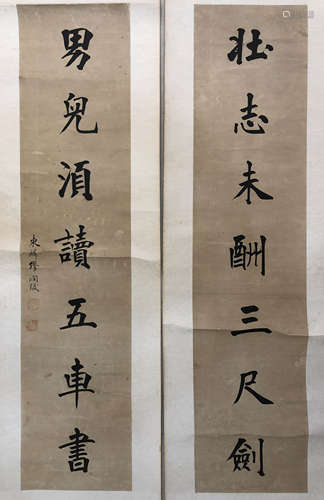 壯志未酬三尺劍
男兒須讀五車書